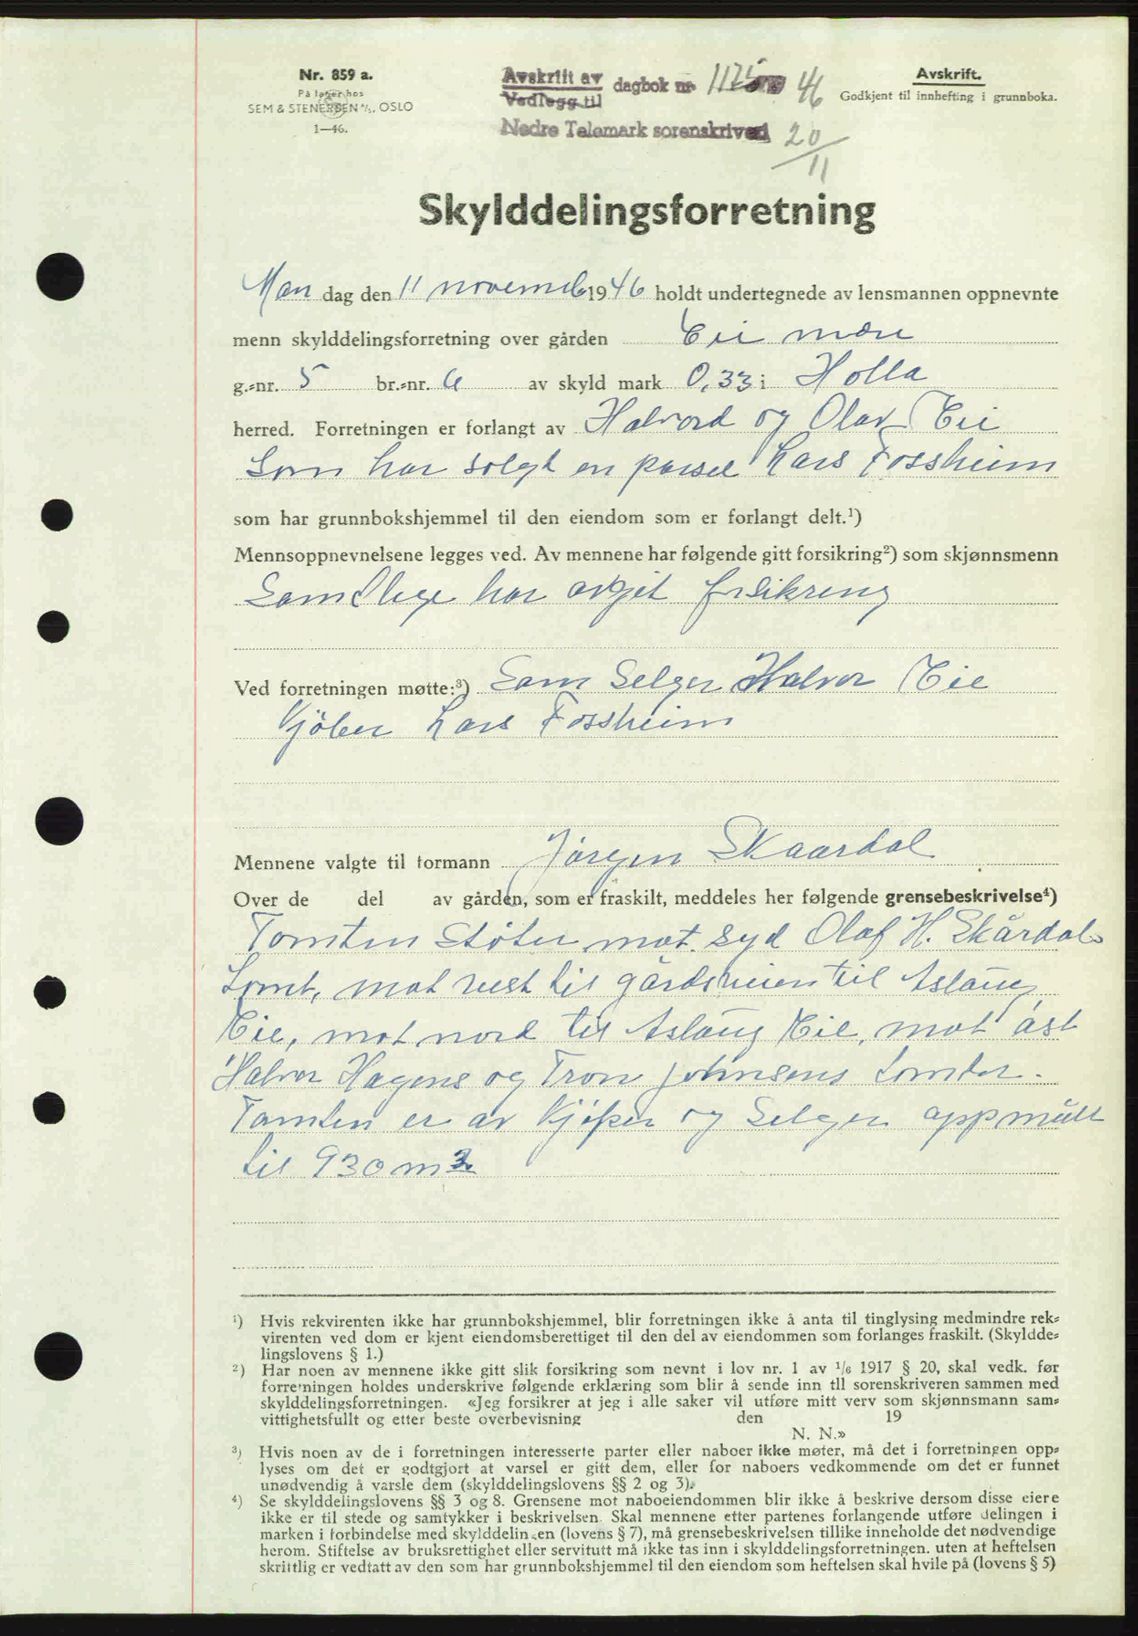 Nr. 859 a.
På lager hos
SEM & STENERSEN A/S. OSLO
1—46.
Avskrift av
Vedlegg til
dagbok nr. 1175 46
Nedre Telemark sorenskriveri
20/11
Avskrift.
Godkjent til innhefting i grunnboka.
Skylddelingsforretning
Man dag den 11 novemb 1946 holdt undertegnede av lensmannen oppnevnte
menn skylddelingsforretning over gården Eie
g.=nr. 5 br.=nr. 6 av skyld mark 0,33 i Holla
herred. Forretningen er forlangt av Halvord og Olav Eie
Som har solgt en parsel Lars Fossheim
som har grunnbokshjemmel til den eiendom som er forlangt delt.¹)
Mennsoppnevnelsene legges ved. Av mennene har følgende gitt forsikring²) som skjønnsmenn
Samtlige har avgit forsikring
Ved forretningen møtte:³) Som Selger Halvor Eie
Kjöber Lars Fossheim
Mennene valgte til formann Jørgen Skaardal
Over de del av gården, som er fraskilt, meddeles her følgende grensebeskrivelse⁴)
Tomten støter mot syd Olaf H. Skårdals
tomt, mot vest til gårdsveien til Aslaug
Eie, mot nord til Aslaug Eie, mot øst
Halvor Hagens og Tron Johnsens tomter.
Tomten er av Kjøper og Selger oppmålt
til 930 m2
¹) Hvis rekvirenten ikke har grunnbokshjemmel, blir forretningen ikke å anta til tinglysing medmindre rek=
virenten ved dom er kjent eiendomsberettiget til den del av eiendommen som forlanges fraskilt. (Skyldde=
lingslovens § 1.)
²) Har noen av mennene ikke gitt slik forsikring som nevnt i lov nr. 1 av ¹/₆ 1917 § 20, skal vedk. før
forretningen holdes underskrive følgende erklæring som blir å sende inn til sorenskriveren sammen med
skylddelingsforretningen. «Jeg forsikrer at jeg i alle saker vil utføre mitt verv som skjønnsmann sam=
vittighetsfullt og etter beste overbevisning den 19
N. N.»
³) Hvis noen av de i forretningen interesserte parter eller naboer ikke møter, må det i forretningen opp=
lyses om det er godtgjort at varsel er gitt dem, eller for naboers vedkommende om det er funnet
unødvendig å varsle dem (skylddelingslovens §§ 2 og 3).
⁴) Se skylddelingslovens §§ 3 og 8. Grensene mot naboeiendommen blir ikke å beskrive dersom disse eiere
ikke er til stede og samtykker i beskrivelsen. Skal mennene etter partenes forlangende utføre delingen i
marken i forbindelse med skylddelingen (lovens § 7), må grensebeskrivelsen tillike inneholde det nødvendige
herom. Stiftelse av bruksrettighet eller servitutt må ikke tas inn i skylddelingsforretningen. uten at heftelsen
skriftlig er vedtatt av den som har grunnbokshjemmel til den eiendom som heftelsen skal hvile på (lovens § 5)